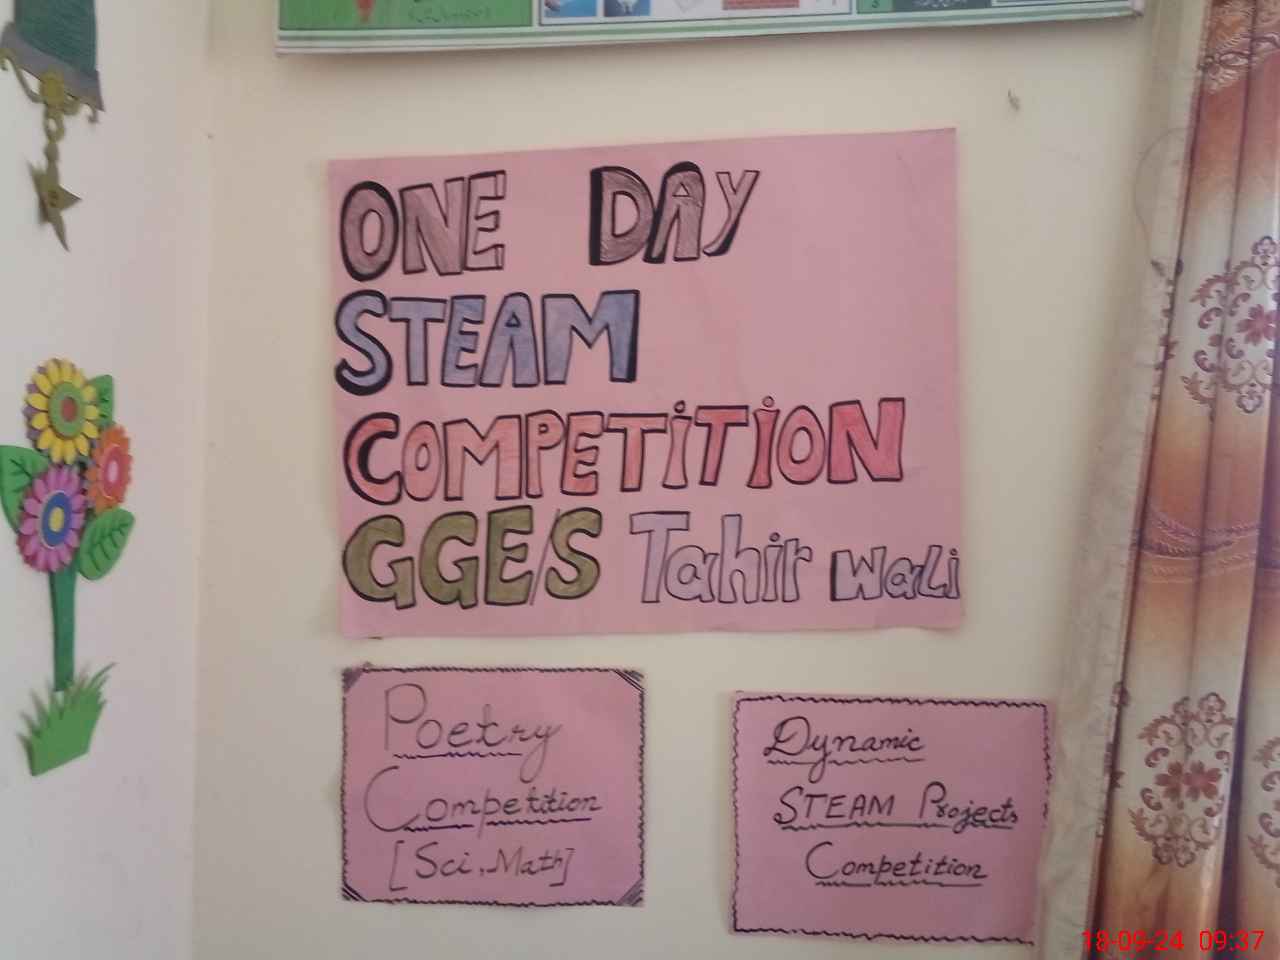 ONE DAY
STEAM
COMPETiTiON
GGE/S Tahir Wali
Poetry
Competition
[Sci, Math]
Dynamic
STEAM Projects
Competition
18-09-24 09:37